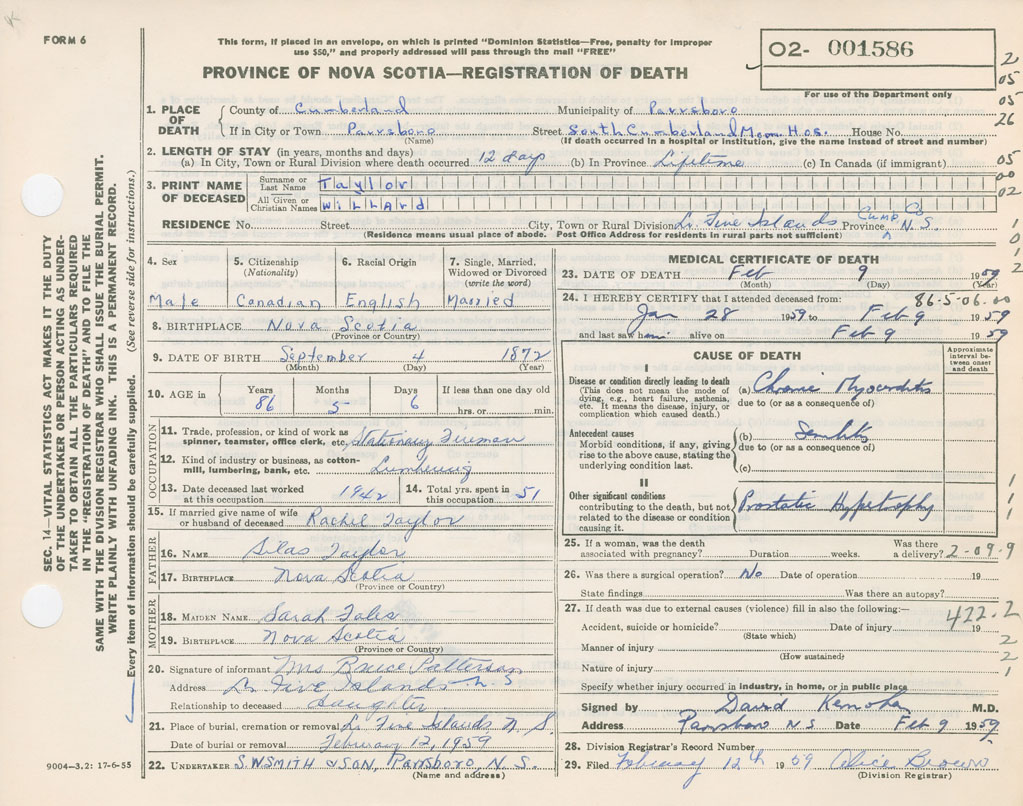 FORM 6
This form, if placed in an envelope, on which is printed "Dominion Statistics—Free, penalty for improper
use $50," and properly addressed will pass through the mail "FREE"
PROVINCE OF NOVA SCOTIA—REGISTRATION OF DEATH
02- 001586
For use of the Department only
2
05
05
26
05
00
02
1
0
1
2
SEC. 14—VITAL STATISTICS ACT MAKES IT THE DUTY
OF THE UNDERTAKER OR PERSON ACTING AS UNDER-
TAKER TO OBTAIN ALL THE PARTICULARS REQUIRED
IN THE "REGISTRATION OF DEATH" AND TO FILE THE
SAME WITH THE DIVISION REGISTRAR WHO SHALL ISSUE THE BURIAL PERMIT.
WRITE PLAINLY WITH UNFADING INK. THIS IS A PERMANENT RECORD.
Every item of information should be carefully supplied. (See reverse side for instructions.)
1. PLACE OF DEATH
County of Cumberland Municipality of Parrsboro
If in City or Town Parrsboro Street South Cumberland Mem. Hos. House No.
(Name) (If death occurred in a hospital or institution, give the name instead of street and number)
2. LENGTH OF STAY (in years, months and days)
(a) In City, Town or Rural Division where death occurred 12 days (b) In Province Lifetime (c) In Canada (if immigrant)
3. PRINT NAME OF DECEASED
Surname or Last Name Tayllor
All Given or Christian Names WILLARd
RESIDENCE No. Street City, Town or Rural Division Lr. Five Islands Cumb Co Province N.S.
(Residence means usual place of abode. Post Office Address for residents in rural parts not sufficient)
4. Sex
Male
5. Citizenship (Nationality)
Canadian
6. Racial Origin
English
7. Single, Married, Widowed or Divorced (write the word)
Married
8. BIRTHPLACE Nova Scotia
(Province or Country)
9. DATE OF BIRTH September 4 1872
(Month) (Day) (Year)
10. AGE in
Years 86
Months 5
Days 6
If less than one day old
hrs. or min.
OCCUPATION
11. Trade, profession, or kind of work as
spinner, teamster, office clerk, etc. Stationary Fireman
12. Kind of industry or business, as cotton-
mill, lumbering, bank, etc. Lumbering
13. Date deceased last worked
at this occupation 1942
14. Total yrs. spent in
this occupation 51
15. If married give name of wife
or husband of deceased Rachel Taylor
FATHER
16. NAME Silas Taylor
17. BIRTHPLACE Nova Scotia
(Province or Country)
MOTHER
18. MAIDEN NAME Sarah
19. BIRTHPLACE Nova Scotia
(Province or Country)
20. Signature of informant Mrs Bruce Patterson
Address Lr Five Islands N.S
Relationship to deceased daughter
21. Place of burial, cremation or removal Lr. Five Islands N.S.
Date of burial or removal February 12, 1959
22. UNDERTAKER S.W SMITH & SON, Parrsboro, N.S.
(Name and address)
9004—3.2: 17-6-55
MEDICAL CERTIFICATE OF DEATH
23. DATE OF DEATH Feb 9 1959
(Month) (Day) (Year)
24. I HEREBY CERTIFY that I attended deceased from: 86-5-06-00
Jan 28 1959 to Feb 9 1959
and last saw him alive on Feb 9 1959
CAUSE OF DEATH
Approximate interval be-tween onset and death
I
Disease or condition directly leading to death
(This does not mean the mode of
dying, e.g., heart failure, asthenia,
etc. It means the disease, injury, or
complication which caused death.)
(a) Chronic Myocarditis
due to (or as a consequence of)
Antecedent causes
Morbid conditions, if any, giving
rise to the above cause, stating the
underlying condition last.
(b) Senility
due to (or as a consequence of)
(c)
II
Other significant conditions
contributing to the death, but not
related to the disease or condition
causing it.
Prostatic Hypertrophy
1
1
1
25. If a woman, was the death
associated with pregnancy? Duration weeks. Was there
a delivery? 2-09-9
26. Was there a surgical operation? No Date of operation 19
State findings Was there an autopsy?
27. If death was due to external causes (violence) fill in also the following:—
422.2
Accident, suicide or homicide? Date of injury 19
(State which)
Manner of injury
(How sustained)
Nature of injury
2
2
1
Specify whether injury occurred in industry, in home, or in public place
Signed by David M.D.
Address Parrsboro N S Date Feb 9 1959
28. Division Registrar's Record Number
29. Filed February 12th 1959 Alice Brown
(Division Registrar)